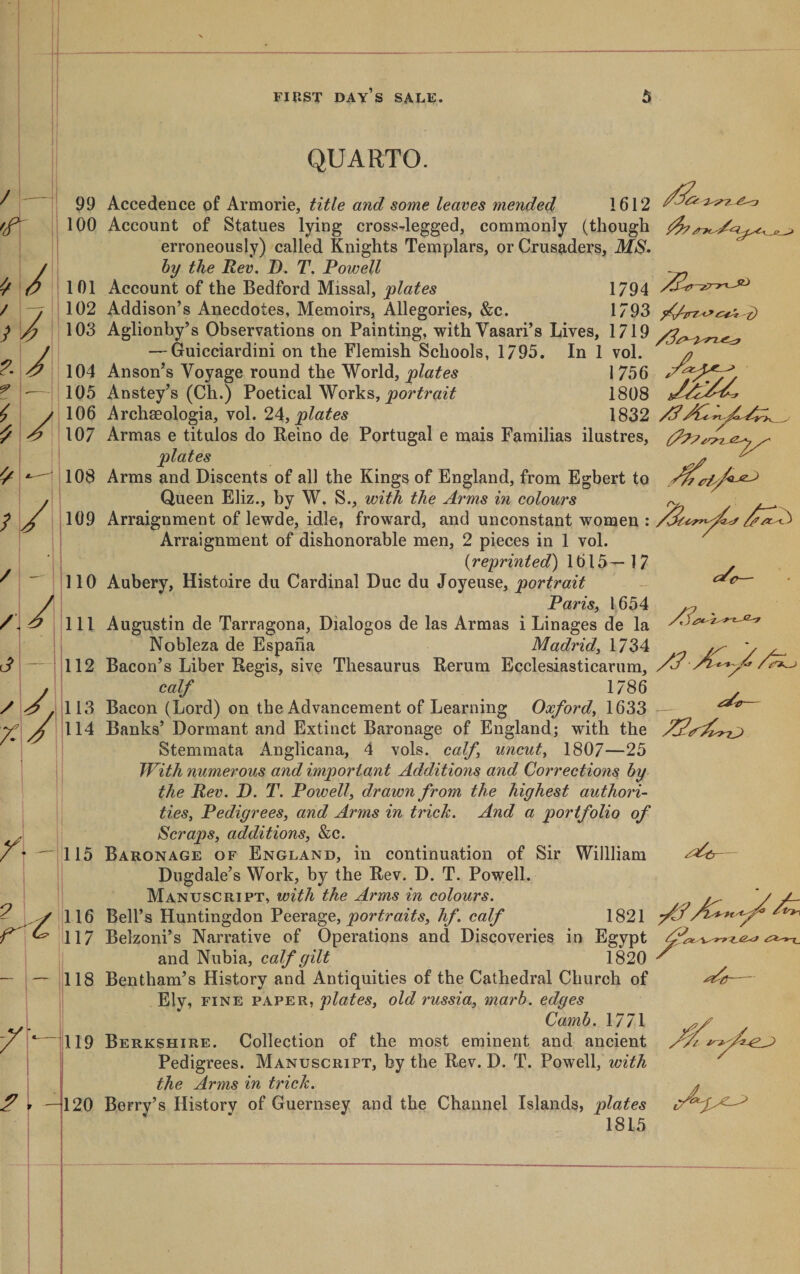 FIRST DAY'S SALE. 5
QUARTO.
99 Accedence of Armorie, title and some leaves mended 1612
100 Account of Statues lying cross-legged, commonly (though
erroneously) called Knights Templars, or Crusaders, MS.
by the Rev. D. T. Powell
101 Account of the Bedford Missal, plates 1794
102 Addison's Anecdotes, Memoirs, Allegories, &c. 1793
103 Aglionby's Observations on Painting, with Vasari's Lives, 1719
—Guicciardini on the Flemish Schools, 1795. In 1 vol.
104 Anson's Voyage round the World, plates 1756
105 Anstey's (Ch.) Poetical Works, portrait 1808
106 Archæologia, vol. 24, plates 1832
107 Armas e titulos do Reino de Portugal e mais Familias ilustres,
plates
108 Arms and Discents of all the Kings of England, from Egbert to
Queen Eliz., by W. S., with the Arms in colours
109 Arraignment of lewde, idle, froward, and unconstant women :
Arraignment of dishonorable men, 2 pieces in 1 vol.
(reprinted) 1615—17
110 Aubery, Histoire du Cardinal Duc du Joyeuse, portrait
Paris, 1654
do
111 Augustin de Tarragona, Dialogos de las Armas i Linages de la
Nobleza de España Madrid, 1734
112 Bacon's Liber Regis, sive Thesaurus Rerum Ecclesiasticarum,
calf 1786
113 Bacon (Lord) on the Advancement of Learning Oxford, 1633
do
114 Banks' Dormant and Extinct Baronage of England; with the
Stemmata Anglicana, 4 vols. calf, uncut, 1807—25
With numerous and important Additions and Corrections by
the Rev. D. T. Powell, drawn from the highest authori-
ties, Pedigrees, and Arms in trick. And a portfolio of
Scraps, additions, &c.
115 Baronage of England, in continuation of Sir Willliam
do
Dugdale's Work, by the Rev. D. T. Powell.
Manuscript, with the Arms in colours.
116 Bell's Huntingdon Peerage, portraits, hf. calf 1821
117 Belzoni's Narrative of Operations and Discoveries in Egypt
and Nubia, calf gilt 1820
118 Bentham's History and Antiquities of the Cathedral Church of
do
Ely, fine paper, plates, old russia, marb. edges
Camb. 1771
119 Berkshire. Collection of the most eminent and ancient
Pedigrees. Manuscript, by the Rev. D. T. Powell, with
the Arms in trick.
120 Berry's History of Guernsey and the Channel Islands, plates
1815